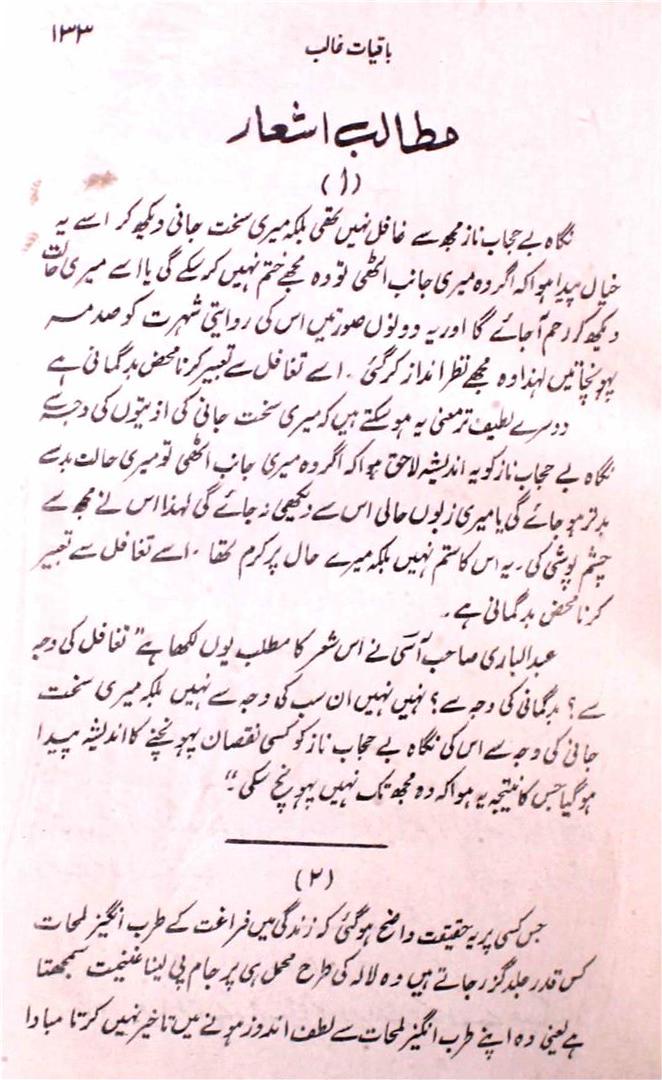 ۱۳۳
باقیات غالب
مطالب اشعار
(۱)
نگاہ بے حجاب ناز مجھ سے غافل نہیں تھی بلکہ میری سخت جانی دیکھ کر اسے یہ
خیال پیدا ہوا کہ اگر وہ میری جانب اٹھی تو وہ مجھے ختم نہیں کر سکے گی یا اسے میری حالت
دیکھ کر رحم آ جائے گا اور یہ دونوں صورتیں اس کی روایتی شہرت کو صدمہ
پہونچاتیں لہٰذا وہ مجھے نظر انداز کر گئی ۔ اسے تغافل سے تعبیر کرنا محض بدگمانی ہے
دوسرے لطیف تر معنی یہ ہو سکتے ہیں کہ میری سخت جانی کی اذیتوں کی وجہ سے
نگاہ بے حجاب ناز کو یہ اندیشہ لاحق ہوا کہ اگر وہ میری جانب اٹھی تو میری حالت بد سے
بدتر ہو جائے گی یا میری زبوں حالی اس سے دیکھی نہ جائے گی لہٰذا اس نے مجھ سے
چشم پوشی کی ۔ یہ اس کا ستم نہیں بلکہ میرے حال پر کرم تھا ۔ اسے تغافل سے تعبیر
کرنا محض بدگمانی ہے ۔
عبدالباری صاحب آسی نے اس شعر کا مطلب یوں لکھا ہے " تغافل کی وجہ
سے ؟ بدگمانی کی وجہ سے ؟ نہیں نہیں ان سب کی وجہ سے نہیں بلکہ میری سخت
جانی کی وجہ سے اس کی نگاہ بے حجاب ناز کو کسی نقصان پہونچنے کا اندیشہ پیدا
ہو گیا جس کا نتیجہ یہ ہوا کہ وہ مجھ تک نہیں پہونچ سکی ۔"
(۲)
جس کسی پر یہ حقیقت واضح ہو گئی کہ زندگی میں فراغت کے طرب انگیز لمحات
کس قدر جلد گزر جاتے ہیں وہ لالہ کی طرح محمل ہی پر جام پی لینا غنیمت سمجھتا
ہے یعنی وہ اپنے طرب انگیز لمحات سے لطف اندوز ہونے میں تاخیر نہیں کرتا مبادا